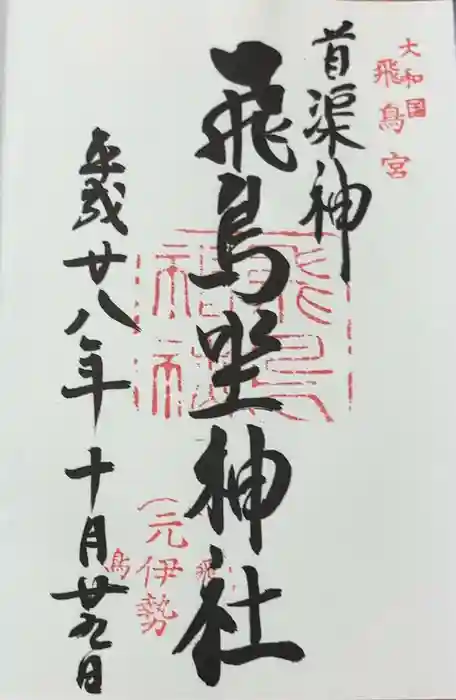 大和国
飛鳥宮
首渠神
飛鳥坐神社
平成廿八年十月廿九日
(元伊勢
飛
鳥